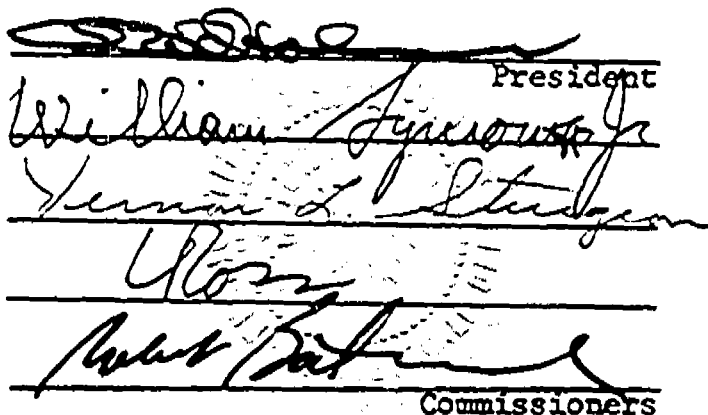 President
William Symons Jr
Vernon L. Sturgeon
Ross
Robert Batinovich
Commissioners